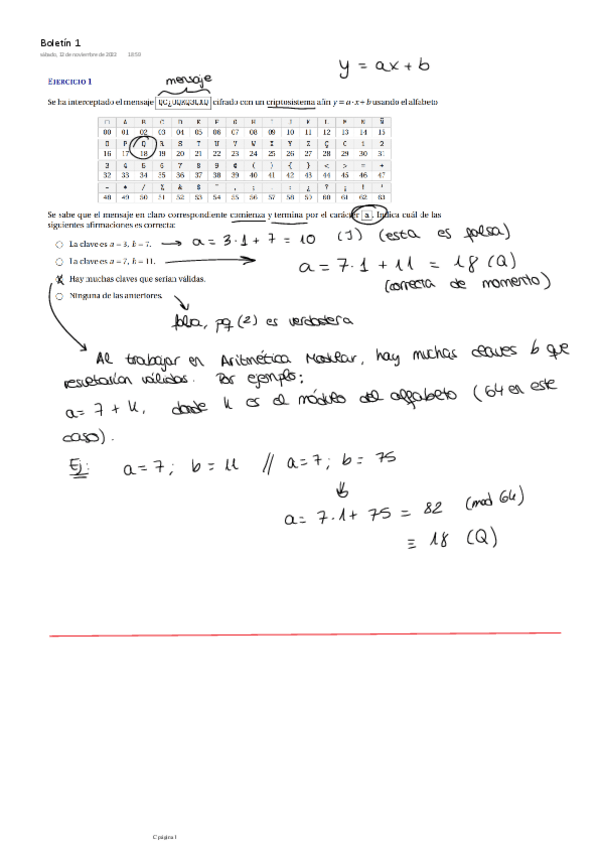 Boletín 1
sábado, 12 de noviembre de 2022 18:59
y = ax + b
EJERCICIO 1
mensaje
Se ha interceptado el mensaje cifrado con un criptosistema afín y = a · x + b usando el alfabeto
A B C D E F G H I J K L M N Ñ
00 01 02 03 04 05 06 07 08 09 10 11 12 13 14 15
O P Q R S T U V W X Y Z Ç C 1 2
16 17 18 19 20 21 22 23 24 25 26 27 28 29 30 31
32 33 34 35 36 37 38 39 40 41 42 43 44 45 46 47
48 49 50 51 52 53 54 55 56 57 58 59 60 61 62 63
Se sabe que el mensaje en claro correspondiente comienza y termina por el carácter a. Indica cuál de las
siguientes afirmaciones es correcta:
La clave es a = 3, b = 7. → a = 3·1 + 7 = 10 (J) (esta es falsa)
La clave es a = 7, b = 11. → a = 7·1 + 11 = 18 (Q)
(correcta de momento)
Hay muchas claves que serían válidas.
Ninguna de las anteriores.
falsa, pq (2) es verdadera
Al trabajar en Aritmética Modular, hay muchas claves b que
resultarían válidas. Por ejemplo;
a = 7 + k, donde k es el módulo del alfabeto (64 en este
caso).
Ej: a = 7; b = 11 // a = 7; b = 75
a = 7·1 + 75 = 82 (mod 64)
≡ 18 (Q)
C página 1